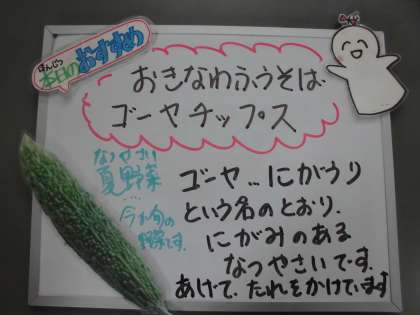 ほんじつ
本日の
おすすめ
おきなわふうそば
ゴーヤチップス
なつやさい
夏野菜
…
今が旬の
野菜です。
ゴーヤ…にがうり
という名のとおり、
にがみのある
なつやさいです。
あげて、たれをかけています